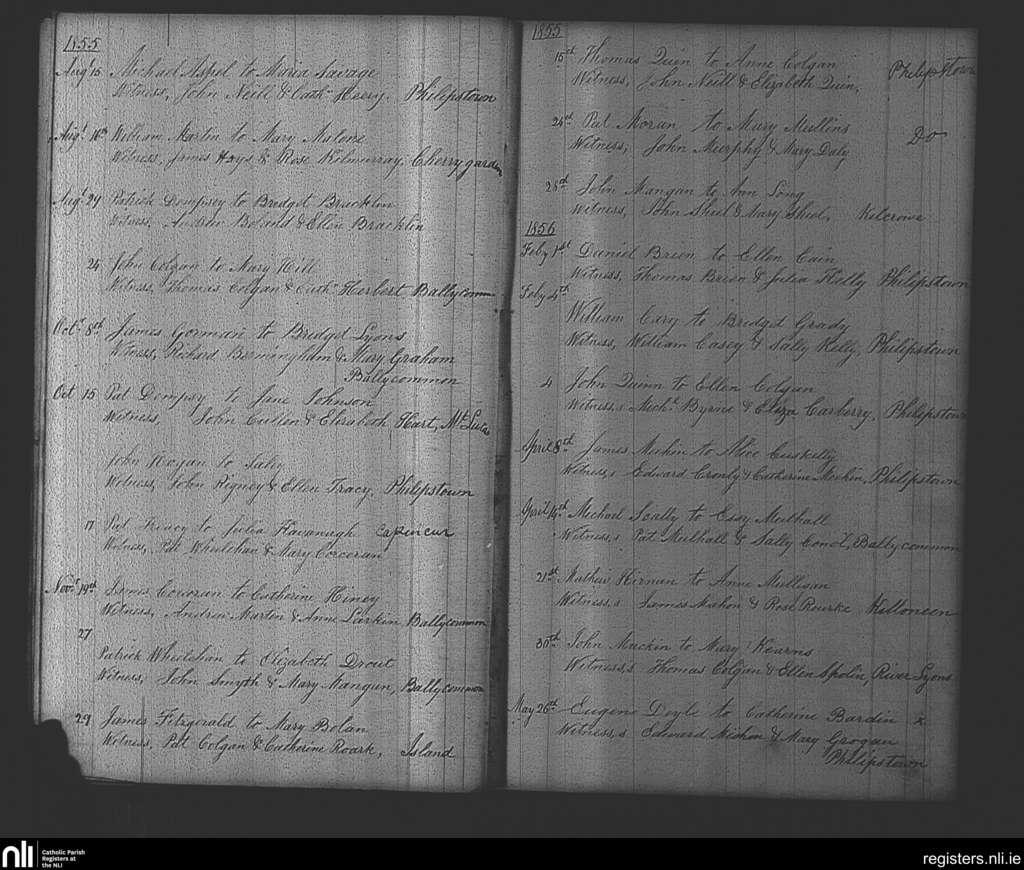 1855
Augt 15 Michael Aspel to Maria Savage
Witness, John Neill & Cathn Heery. Philipstown
Augt 16th William Martin to Mary Malone
Witness, James Hays & Rose Kilmurray, Cherrygarden
Augt 24 Patrick Dempsey to Bredget Bracklin
Witness, Andrew Boland & Ellen Bracklin
24 John Colgan to Mary Hill
Witness, Thomas Colgan & Cathn Herbert Ballycommon
Octr 8th James Gorman to Bredget Lyons
Witness, Richard Bermingham & Mary Graham
Ballycommon
Oct 15 Pat Dempsey to Jane Johnson
Witness, John Cullen & Elizabeth Hart, Mt Lucas
John Hogan to
Witness, John Rigney & Ellen Tracy, Philipstown
17 Pat Tracy to Julia Kavanagh Capincur
Witness, Pat Whelehan & Mary Corcoran
Novr 19th James Corcoran to Catherine Hiney
Witness, Andrew Martin & Anne Larkin, Ballycommon
27
Patrick Whelehan to Elizabeth Drout
Witness, John Smyth & Mary Mangan, Ballycommon
29 James Fitzgerald to Mary Bolan
Witness, Pat Colgan & Catherine Roark, Island
1855
15th Thomas Quin to Anne Colgan Philipstown
Witness, John Neill & Elizabeth Quin,
24th Pat Moran to Mary Mullins Do
Witness, John Murphy & Mary Daly
28th John Mangan to Ann Long
Witness, John Sheil & Mary Sheil, Kilcrowe
1856
Feby 1st Daniel Breen to Ellen Cain
Witness, Thomas Breen & Julia Helly Philipstown
Feby 4th
William Cary to Bredget Grady
Witness, William Casey & Sally Kelly, Philipstown
4 John Quinn to Ellen Colgan
Witness,s Michl Byrne & Eliza Carberry, Philipstown
April 8th James Mechin to Alice Cuskelly
Witness,s Edward Cronly & Catherine Mechin, Philipstown
April 14th Michael Scally to Essy Mulhall
Witness,s Pat Mulhall & Sally Ballycommon
21st Mathew Kirnan to Anne Mulligan
Witness,s James Mahon & Rose Rourke Killoneen
30th John Mackin to Mary Kearns
Witness,s Thomas Colgan & Ellen Spolin, River Lyons
May 26th Eugene Doyle to Catherine Bardin x
Witness,s Edward Mechan & Mary Grogan
Philipstown
nli Catholic Parish
Registers at
the NLI
registers.nli.ie